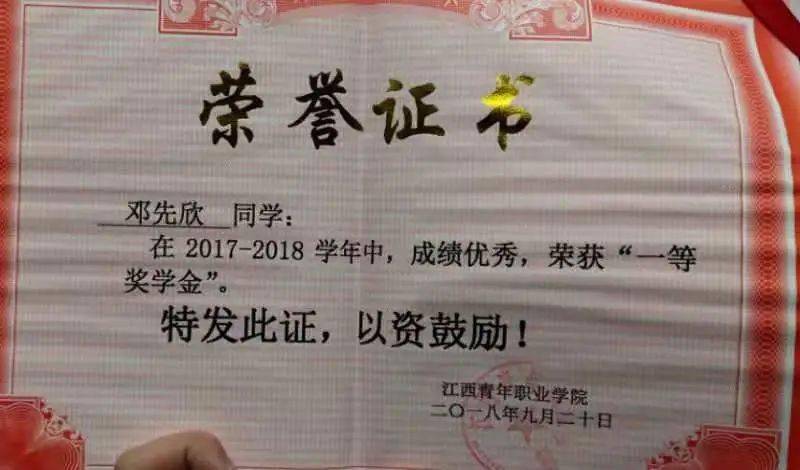 荣誉证书
邓先欣 同学：
在 2017-2018 学年中，成绩优秀，荣获“一等
奖学金”。
特发此证，以资鼓励！
江西青年职业学院
二〇一八年九月二十日